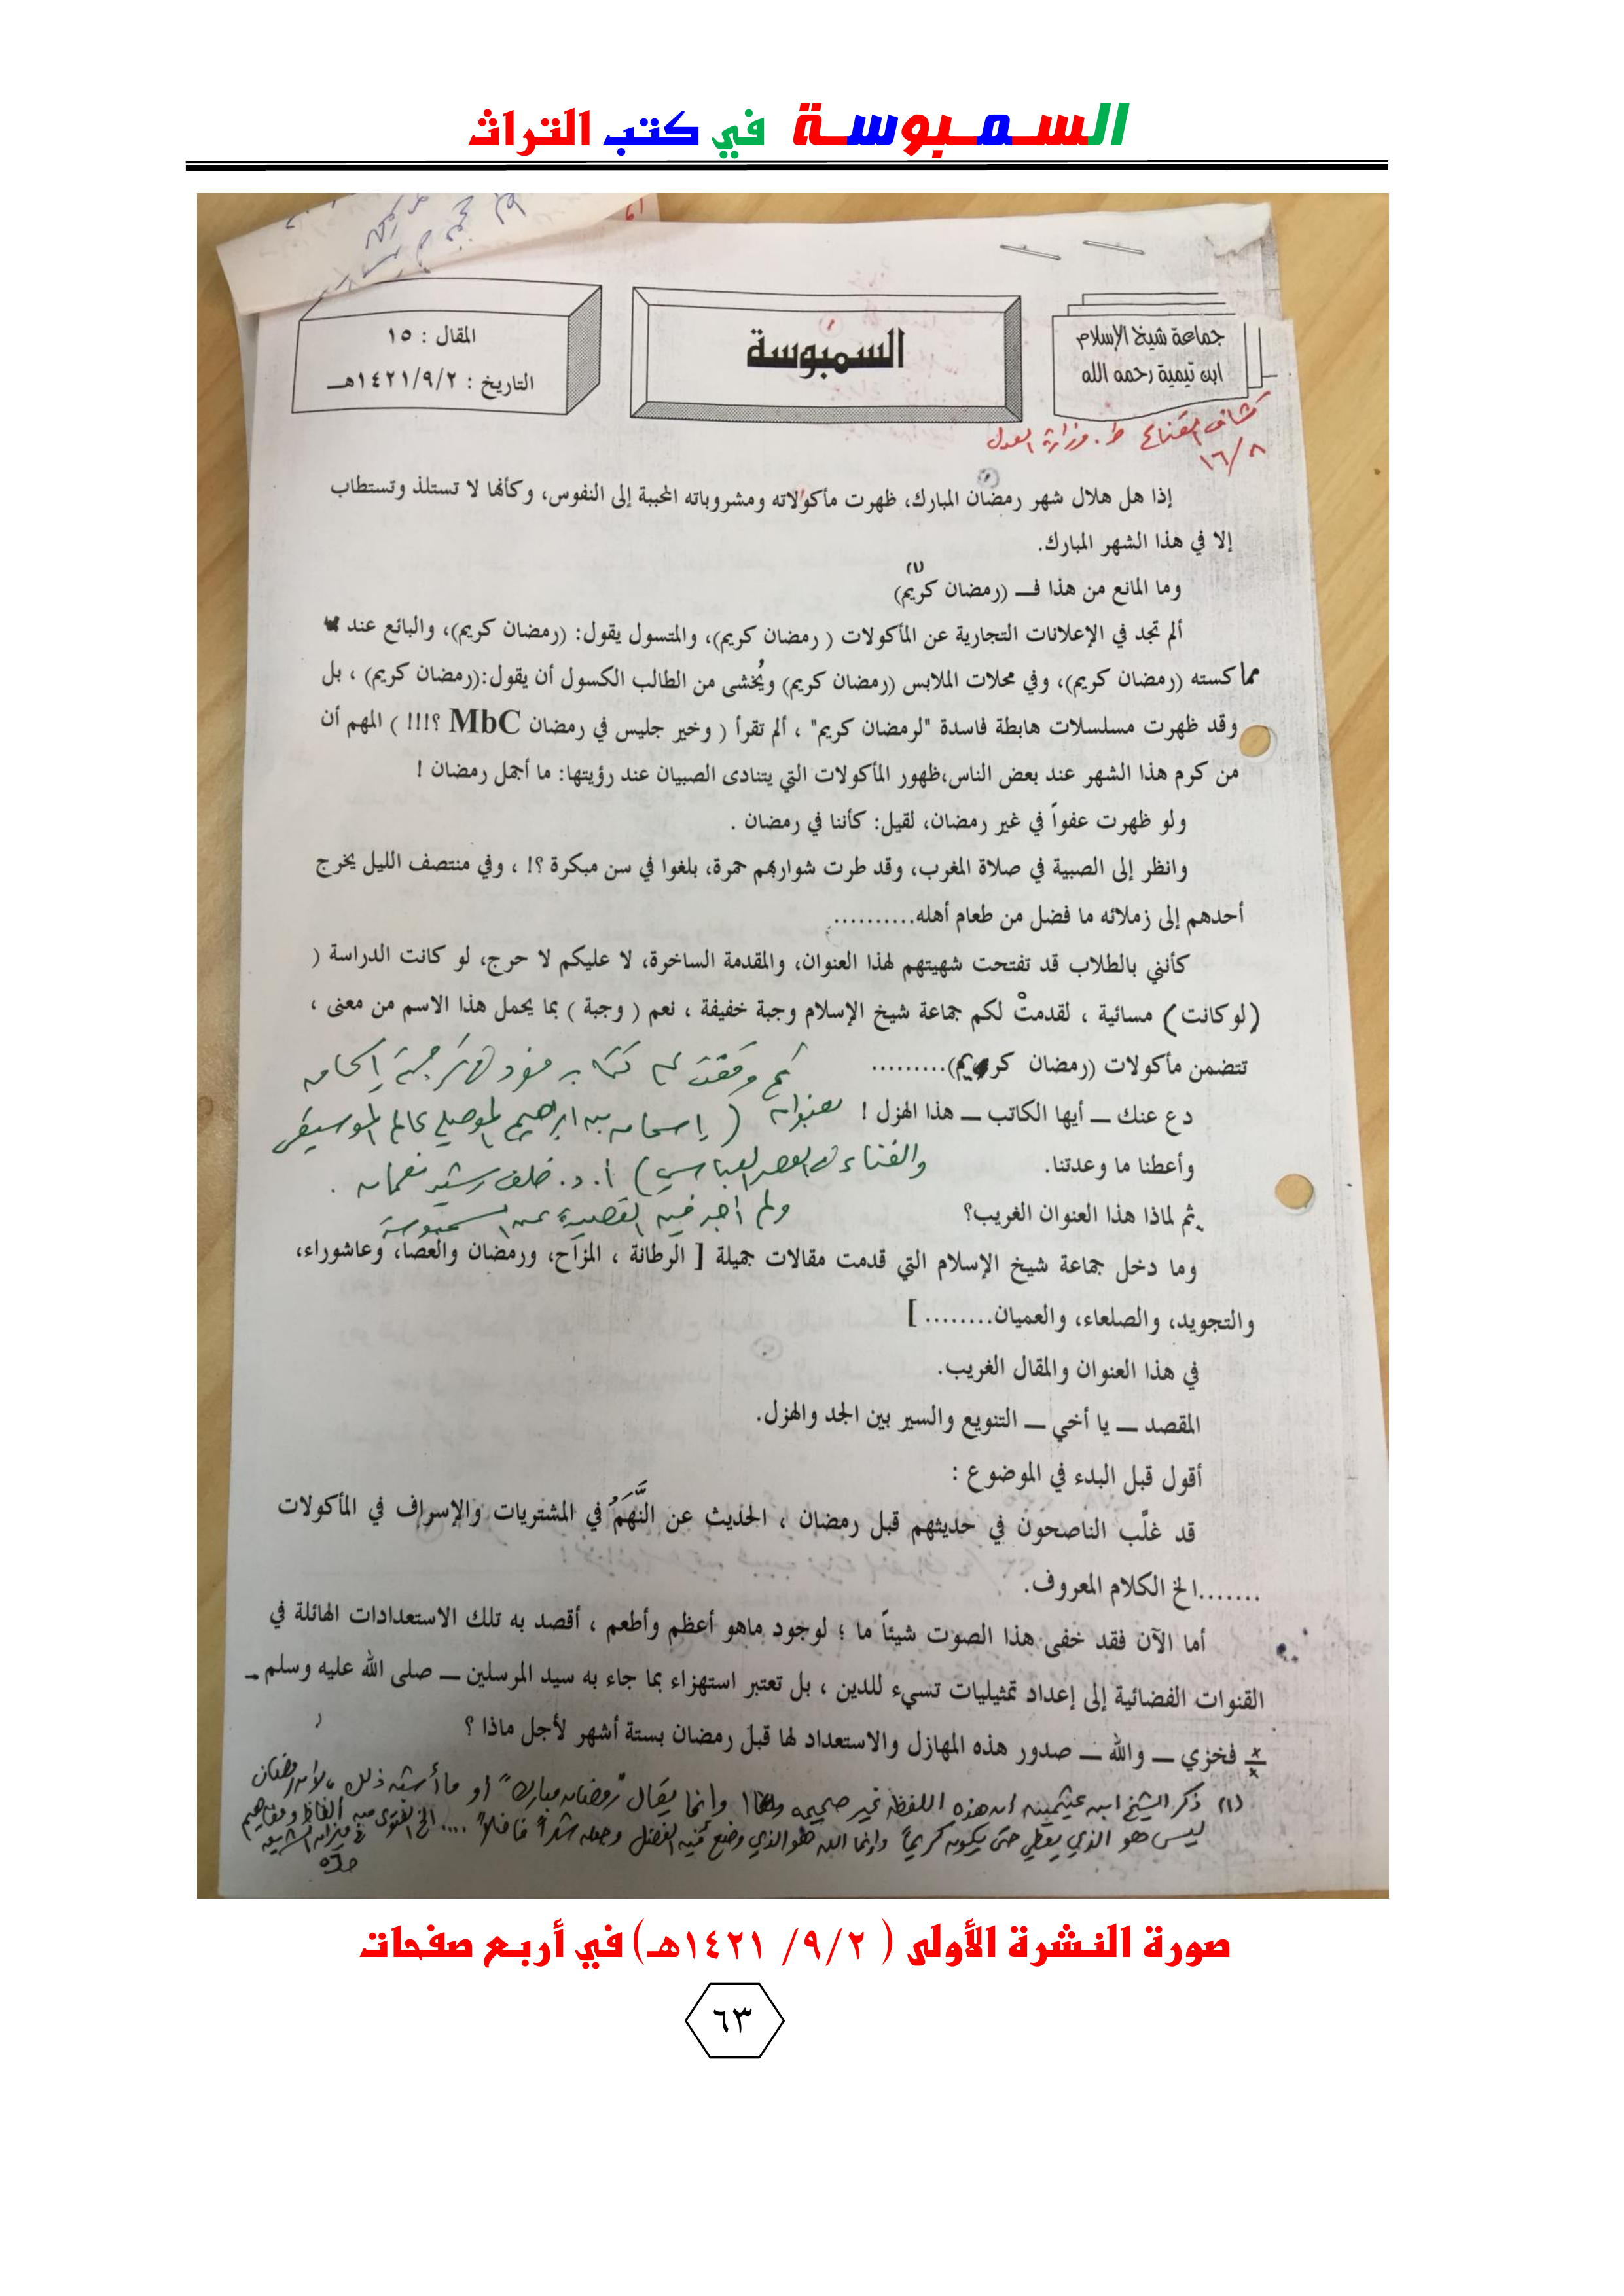 السمبوسة في كتب التراث
جماعة شيخ الإسلام
ابن تيمية رحمه الله
السمبوسة
المقال : ١٥
التاريخ : ١٤٢١/٩/٢هـ
كشاف القناع ط. وزارة العدل
١٦/٨
إذا هل هلال شهر رمضان المبارك، ظهرت مأكولاته ومشروباته المحببة إلى النفوس، وكأنها لا تستلذ وتستطاب
إلا في هذا الشهر المبارك.
وما المانع من هذا فـ (رمضان كريم) (١)
ألم تجد في الإعلانات التجارية عن المأكولات ( رمضان كريم)، والمتسول يقول: (رمضان كريم)، والبائع عند
مماكسته (رمضان كريم)، وفي محلات الملابس (رمضان كريم) ويُخشى من الطالب الكسول أن يقول:(رمضان كريم) ، بل
وقد ظهرت مسلسلات هابطة فاسدة "لرمضان كريم" ، ألم تقرأ ( وخير جليس في رمضان MbC ؟!!! ) المهم أن
من كرم هذا الشهر عند بعض الناس،ظهور المأكولات التي يتنادى الصبيان عند رؤيتها: ما أجمل رمضان !
ولو ظهرت عفواً في غير رمضان، لقيل: كأننا في رمضان .
وانظر إلى الصبية في صلاة المغرب، وقد طرت شواربهم حمرة، بلغوا في سن مبكرة ؟! ، وفي منتصف الليل يخرج
أحدهم إلى زملائه ما فضل من طعام أهله..........
كأنني بالطلاب قد تفتحت شهيتهم لهذا العنوان، والمقدمة الساخرة، لا عليكم لا حرج، لو كانت الدراسة (
(لو كانت) مسائية ، لقدمتْ لكم جماعة شيخ الإسلام وجبة خفيفة ، نعم ( وجبة ) بما يحمل هذا الاسم من معنى ،
تتضمن مأكولات (رمضان كريم).........
ثم وقفت على كتاب مفرد في ترجمة إسحاق
دع عنك ــ أيها الكاتب ــ هذا الهزل !
بعنوان ( إسحاق بن ابراهيم الموصلي عالم الموسيقى
وأعطنا ما وعدتنا.
والغناء في العصر العباسي ) أ. د. خلف رشيد نعمان .
ثم لماذا هذا العنوان الغريب؟
ولم أجد فيه القصيدة عن السمبوسة
وما دخل جماعة شيخ الإسلام التي قدمت مقالات جميلة [ الرطانة ، المزاح، ورمضان والعصا، وعاشوراء،
والتجويد، والصلعاء، والعميان........ ]
في هذا العنوان والمقال الغريب.
المقصد ــ يا أخي ــ التنويع والسير بين الجد والهزل.
أقول قبل البدء في الموضوع :
قد غلَّب الناصحون في حديثهم قبل رمضان ، الحديث عن النَّهَمُ في المشتريات والإسراف في المأكولات
.......الخ الكلام المعروف.
أما الآن فقد خفى هذا الصوت شيئاً ما ؛ لوجود ماهو أعظم وأطعم ، أقصد به تلك الاستعدادات الهائلة في
القنوات الفضائية إلى إعداد تمثيليات تسيء للدين ، بل تعتبر استهزاء بما جاء به سيد المرسلين ــ صلى الله عليه وسلم ـ
فخزي ــ والله ــ صدور هذه المهازل والاستعداد لها قبل رمضان بستة أشهر لأجل ماذا ؟
(١) ذكر الشيخ ابن عثيمين ان هذه اللفظة غير صحيحة وانما يقال "رمضان مبارك" أو ما أشبه ذلك ، لأن رمضان
ليس هو الذي يعطي حتى يكون كريماً وإنما الله هو الذي وضع فيه الفضل وجعله شهراً فاضلاً .... الخ الفتوى من ألفاظ ومفاهيم
في ميزان الشريعة
صورة النشرة الأولى ( ٩/٢/ ١٤٢١هـ) في أربع صفحات
٦٣